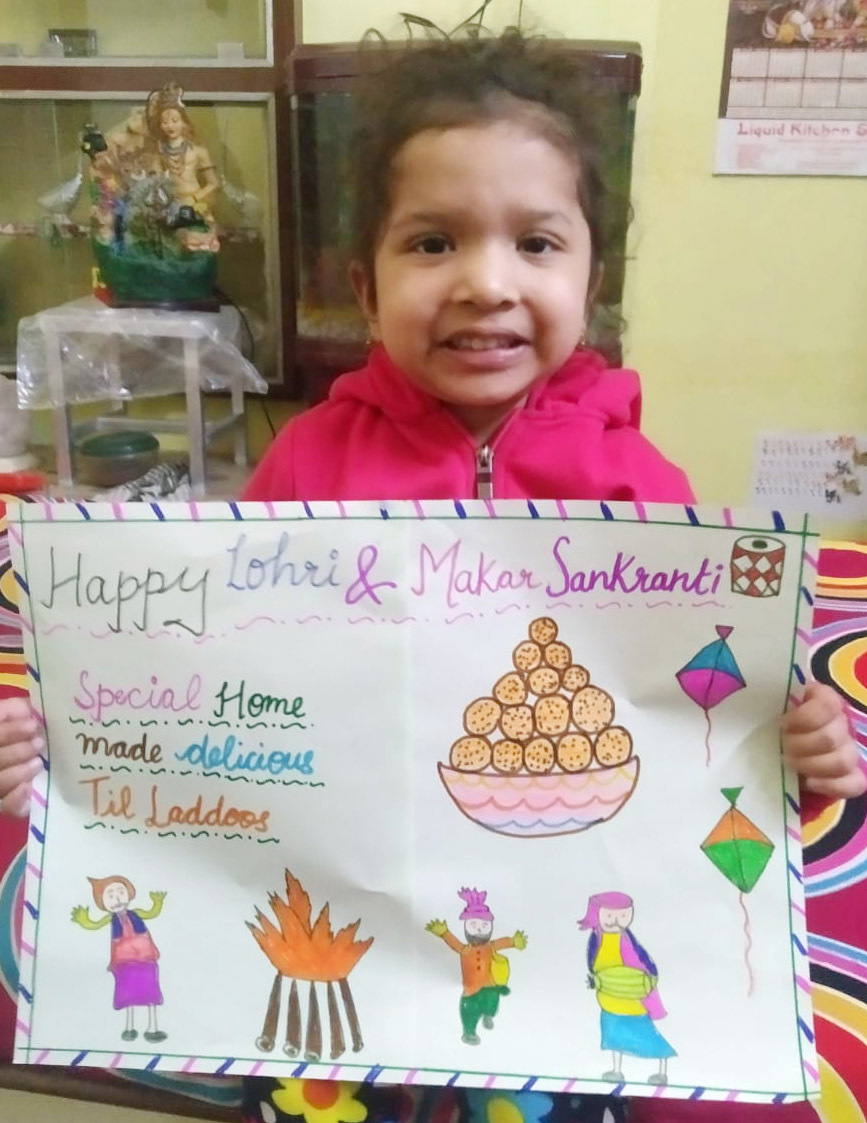 Liquid Kitchen
Happy Lohri & Makar Sankranti
Special Home
made delicious
Til Laddoos